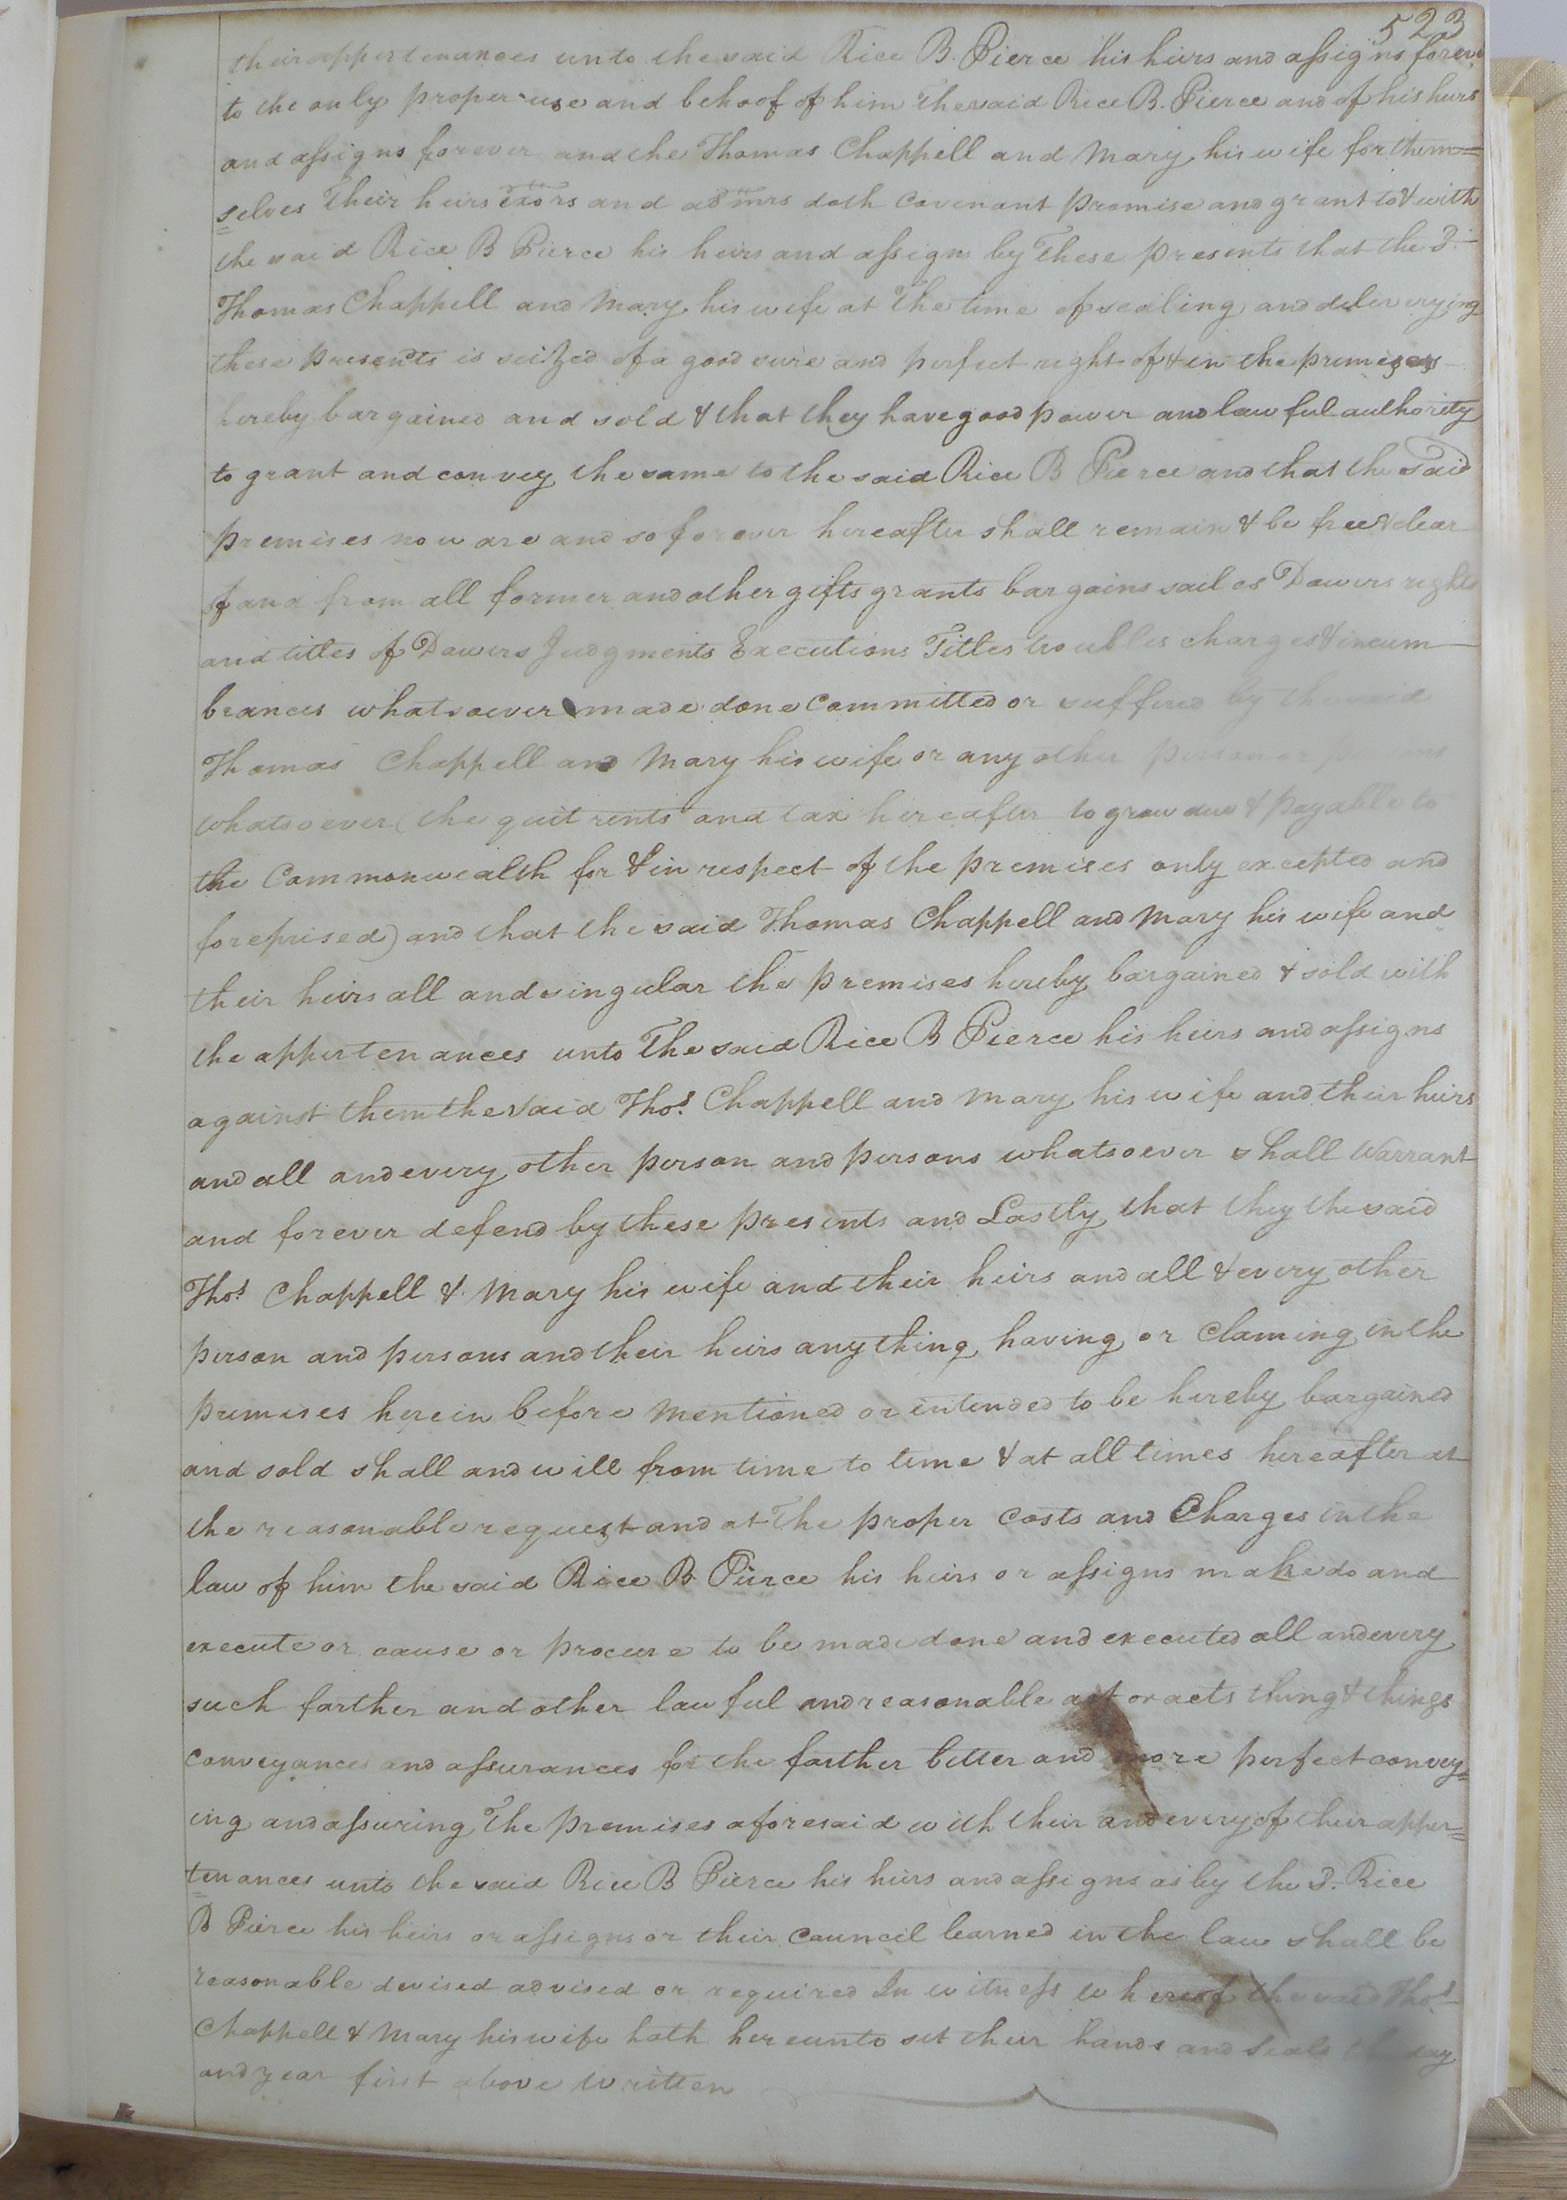 523
their appertenances unto the said Rice B. Pierce his heirs and assigns forever
to the only proper use and behoof of him the said Rice B. Pierce and of his heirs
and assigns forever and the Thomas Chappell and Mary his wife for them=
=selves Their heirs exors and admrs doth Covenant promise and grant to & with
the said Rice B Pierce his heirs and assign by These presents that the Sd.
Thomas Chappell and Mary his wife at The time of sealing and deleverying
these presents is seized of a good sure and perfect right of & in the premises
hereby bargained and sold & that they have good power and lawful authority
to grant and convey the same to the said Rice B Pierce and that the said
premises now are and so forever hereafter shall remain & be free & clear
of and from all former and other gifts grants bargains sail os Dowers rights
and titles of Dowers Judgments Executions Titles troubles charges & incum
brances whatsoever made done Committed or suffered by the said
Thomas Chappell and Mary his wife or any other person or persons
whatsoever (the quit rents and tax hereafter to grow due & payable to
the Commonwealth for & in respect of the premises only excepted and
foreprised) and that the said Thomas Chappell and Mary his wife and
their heirs all and singular the premises hereby bargained & sold with
the appertenances unto The said Rice B Pierce his heirs and assigns
against them the said Thos. Chappell and Mary his wife and their heirs
and all and every other person and persons whatsoever shall Warrant
and forever defend by these presents and Lastly that they the said
Thos. Chappell & Mary his wife and their heirs and all & every other
person and persons and their heirs anything having or Claming in the
premises herein before mentioned or intended to be hereby bargained
and sold shall and will from time to time & at all times hereafter at
the reasonable request and at The proper Costs and Charges in the
law of him the said Rice B Pierce his heirs or assigns make do and
execute or cause or procure to be made done and executed all and every
such farther and other lawful and reasonable act or acts thing & things
conveyances and assurances for the farther better and more perfect convey=
ing and assuring The premises aforesaid with their and every of their apper=
=tenances unto the said Rice B Pierce his heirs and assigns as by the Sd. Rice
B Pierce his heirs or assigns or their Council learned in the law shall be
reasonable devised advised or required In witness whereof the said Thos.
Chappell & Mary his wife hath hereunto set their hands and seals the day
and year first above written